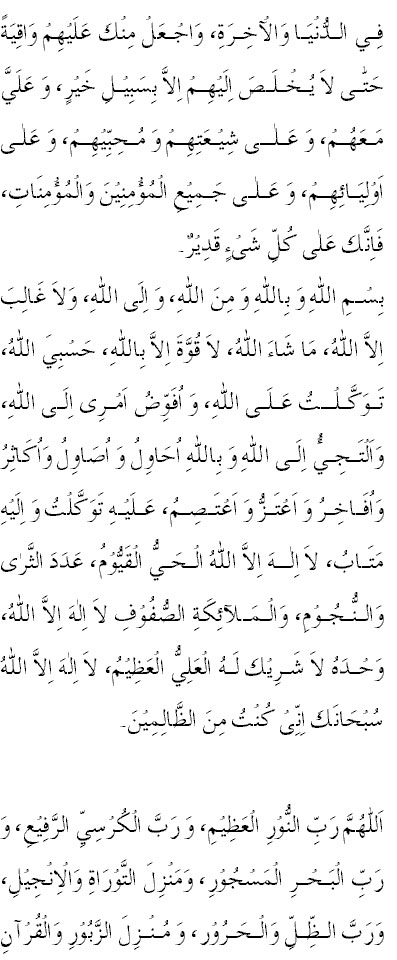 فِي الـدُّنْيَـا وَالْآخِـرَةِ، وَاجْعَلْ مِنْكَ عَلَيْهِمْ وَاقِيَةً
حَتّٰى لاَ يُـخْـلَـصَ اِلَيْهِـمْ اِلاَّ بِسَبِيْـلِ خَيْـرٍ، وَ عَلَيَّ
مَـعَـهُـمْ، وَ عَـلـٰى شِيْـعَتِهِـمْ وَ مُـحِبِّيْهِـمْ، وَ عَـلٰى
اَوْلِيَـائِـهِـمْ، وَ عَـلـٰى جَـمِيْعِ الْمُؤْمِنِيْنَ وَالْمُؤْمِنَاتِ،
فَاِنَّكَ عَلٰى كُلِّ شَىْءٍ قَدِيْرٌ۔
بِسْـمِ اللهِ وَ بِاللهِ وَ مِنَ اللهِ، وَ اِلَى اللهِ، وَلاَ غَالِبَ
اِلاَّ اللهُ، مَا شَاءَ اللهُ، لاَ قُوَّةَ اِلاَّ بِاللهِ، حَسْبِيَ اللهُ،
تَـوَكَّـلْـتُ عَـلَـى اللهِ، وَ اُفَوِّضُ اَمْـرِى اِلَـى اللهِ،
وَاَلْتَـجِـىُٔ اِلَـى اللهِ وَ بِاللهِ اُحَاوِلُ وَ اُصَاوِلُ وَاُكَاثِرُ
وَاُفَـاخِـرُ وَ اَعْتَـزُّ وَ اَعْتَـصِـمُ، عَـلَيْـهِ تَوَكَّلْتُ وَ اِلَيْهِ
مَتَـابُ، لاَ اِلــٰهَ اِلاَّ اللهُ الْـحَـىُّ الْقَيُّوْمُ، عَدَدَ الثَّرٰى
وَالـنُّـجُـوْمِ، وَالْـمَـلَآئِكَةِ الصُّفُوْفِ لاَ اِلٰهَ اِلاَّ اللهُ،
وَحْـدَهُ لاَ شَـرِيْكَ لَـهُ الْعَلِيُّ الْعَظِيْمُ، لاَ اِلٰهَ اِلاَّ اللهُ
سُبْحَانَكَ اِنِّىْ كُنْتُ مِنَ الظَّالِمِيْنَ۔
اَللّٰهُمَّ رَبِّ النُّوْرِ الْعَظِيْمِ، وَ رَبَّ الْكُرْسِيِّ الرَّفِيْعِ، وَ
رَبِّ الْبَـحْـرِ الْمَسْجُوْرِ، وَمَنْزِلَ التَّوْرَاةِ وَالْاِنْجِيْلِ،
وَرَبَّ الـظِّـلِّ وَالْـحَـرُوْرِ، وَ مُـنْـزِلَ الزَّبُوْرِ وَالْقُرْآنِ